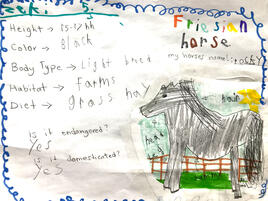 Friesian
horse
Height → 15-17 hh
my horses name:
Color → Black
Body Type → Light breed
Habitat → farms
Diet → grass hay
Is it endangered?
Yes
Is it domesticated?
Yes
hair
head